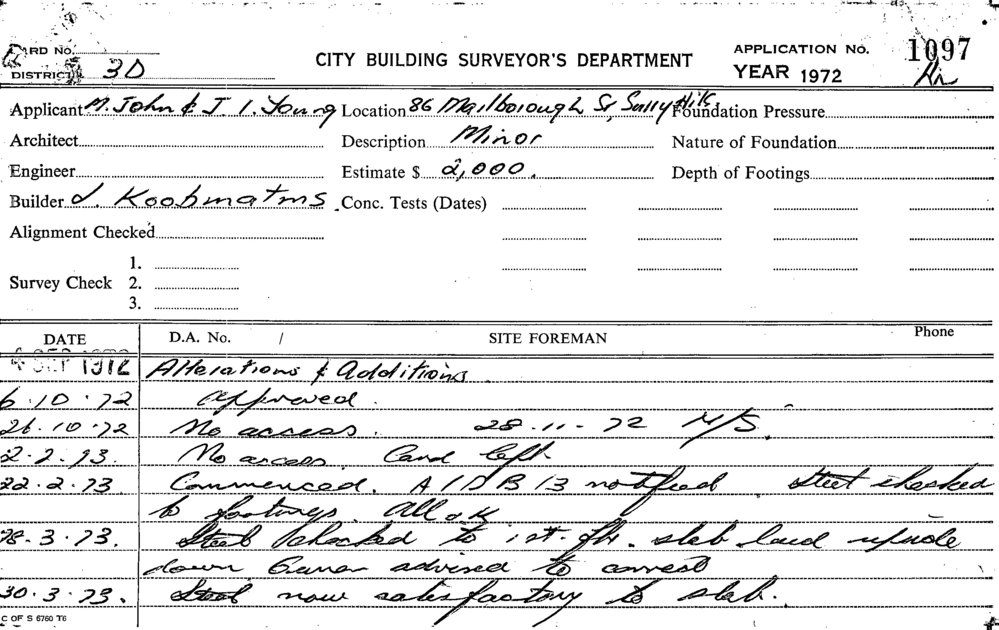 CARD NO.
DISTRICT 3D
CITY BUILDING SURVEYOR'S DEPARTMENT
APPLICATION NO. 1097
YEAR 1972
Applicant M. John & J. I. Young Location 86 Marlborough St, Surry Hills Foundation Pressure
Architect Description Minor Nature of Foundation
Engineer Estimate $ 2,000. Depth of Footings
Builder J. Koobmatms. Conc. Tests (Dates)
Alignment Checked
Survey Check 1.
2.
3.
DATE D.A. No. / SITE FOREMAN Phone
4 SEP 1972 Alterations & Additions
6.10.72 Approved.
26.10.72 No access. 28.11.72 N/S.
2.2.73. No access. Card left
22.2.73. Commenced. A/DB 13 notified. Steel checked
to footings. All OK
28.3.73. Steel checked to 1st. flr. slab laid upside
down advised to correct
30.3.73. Steel now satisfactory to slab.
C OF S 6760 T6